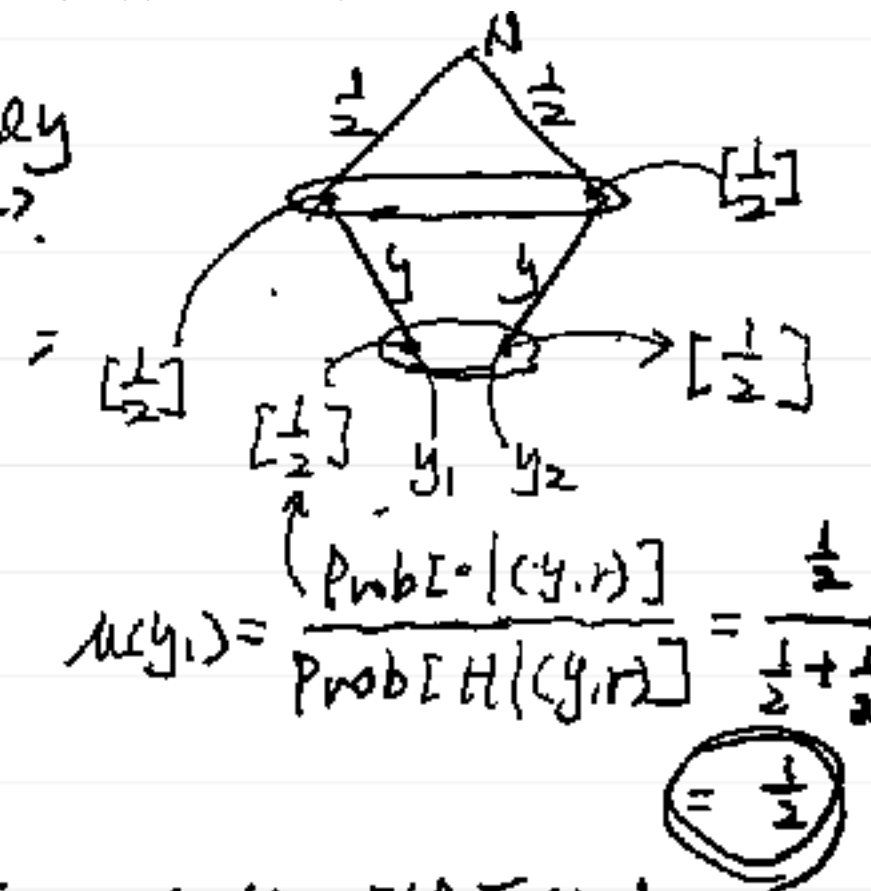 N
1/2 1/2
ey
[1/2]
y y
=
[1/2] [1/2] [1/2]
y₁ y₂
μ(y₁) = Prob[·|(y,r)] / Prob[H|(y,r)] = 1/2 / 1/2 + 1/2
= 1/2